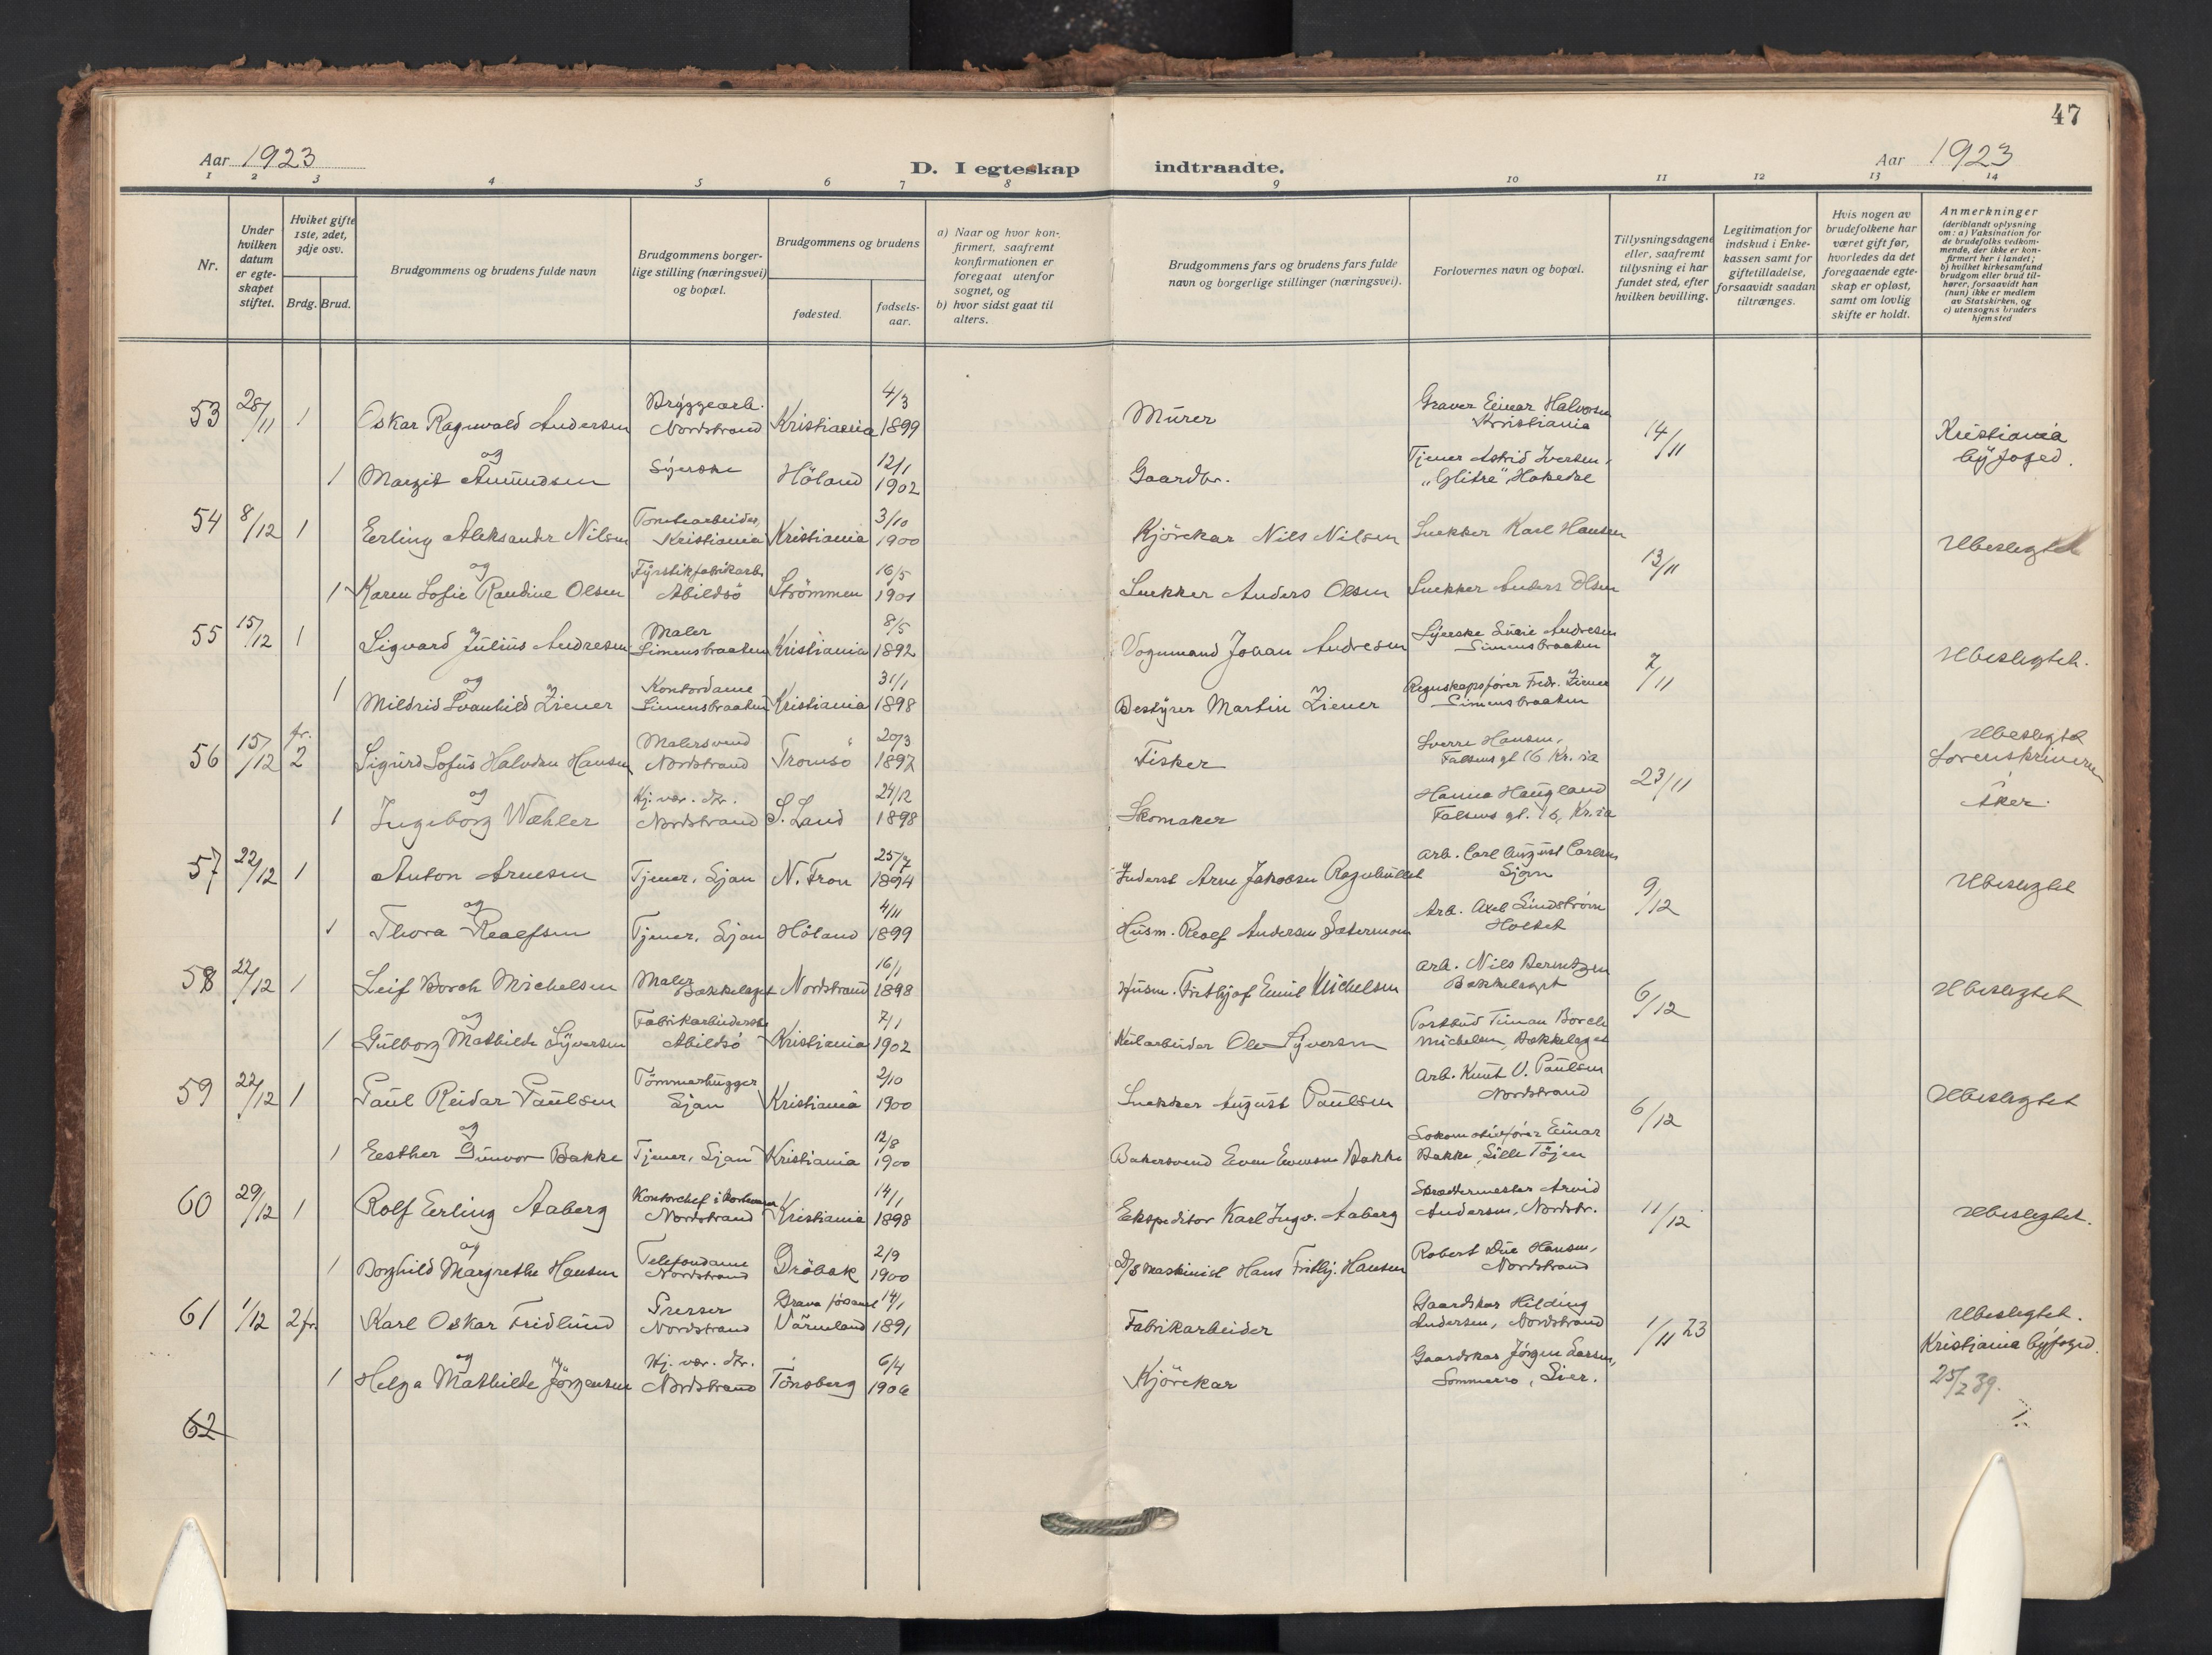 47
Aar 1923
D. I egteskap indtraadte.
Aar 1923
1 2 3 4 5 6 7 8 9 10 11 12 13 14
Nr.
Under hvilken datum er egteskapet stiftet.
Hviket gifte 1ste, 2det, 3dje osv.
Brdg. Brud.
Brudgommens og brudens fulde navn
Brudgommens borgerlige stilling (næringsvei) og bopæl.
Brudgommens og brudens
fødested.
fødselsaar.
a) Naar og hvor konfirmert, saafremt konfirmationen er foregaat utenfor sognet, og
b) hvor sidst gaat til alters.
Brudgommens fars og brudens fars fulde navn og borgerlige stillinger (næringsvei).
Forlovernes navn og bopæl.
Tillysningsdagene eller, saafremt tillysning ei har fundet sted, efter hvilken bevilling.
Legitimation for indskud i Enkekassen samt for giftetilladelse, forsaavidt saadan tiltrænges.
Hvis nogen av brudefolkene har været gift før, hvorledes da det foregaaende egteskap er opløst, samt om lovlig skifte er holdt.
Anmerkninger (deriblandt oplysning om: a) Vaksination for de brudefolks vedkommende, der ikke er konfirmert her i landet; b) hvilket kirkesamfund brudgom eller brud tilhører, forsaavidt han (hun) ikke er medlem av Statskirken, og c) utensogns bruders hjemsted
53 28/11 1 Oskar Ragnvald Andersen Bryggearb. Nordstrand Kristiania 4/3 1899 Murer Graver Einar Halvorsen Kristiania 14/11 Kristiania byfoged.
og
1 Margit Amundsen Syerske Höland 12/1 1902 Gaardbr. Tjener Astrid Iversen, "Glitre" Hakedal
54 8/12 1 Erling Aleksander Nilsen Tomtearbeider, Kristiania Kristiania 3/10 1900 Kjörekar Nils Nilsen Snekker Karl Hansen 13/11 Ubeslegtet
og
1 Karen Sofie Randine Olsen Fyrstikfabrikarb. Abildsö Strömmen 16/5 1901 Snekker Anders Olsen Snekker Anders Olsen
55 15/12 1 Sigvard Julius Andresen Maler Simensbraaten Kristiania 8/5 1892 Vognmand Johan Andresen Syerske Andresen Simensbraaten 7/11 Ubeslegtet.
og
1 Mildrid Svanhild Ziener Kontordame Simensbraaten Kristiania 31/1 1898 Bestyrer Martin Ziener Regnskapsfører Fredr. Ziener Simensbraaten
56 15/12 fr. 2 Sigurd Sofus Halvdan Hansen Malersvend Nordstrand Tromsö 20/3 1897 Fisker Sverre Hansen, Falsens gt 16 Kr.ia 23/11 Ubeslegtet Sorenskriveren i Aker.
og
1 Ingeborg Wæhler Hj. vær. dtr. Nordstrand S. Land 24/12 1898 Skomaker Hanna Haugland Falsens gt. 16, Kr.ia
57 22/12 1 Anton Arnesen Tjener, Ljan N. Fron 25/7 1894 Inderst Arne Jakobsen Arb. Carl August Carlsen Ljan 9/12 Ubeslegtet
og
1 Thora Realfsen Tjener, Ljan Höland 4/11 1899 Husm. Realf Andersen Arb. Axel Lindström Holtet
58 22/12 1 Leif Borch Michelsen Maler Bækkelaget Nordstrand 16/1 1898 Husm. Fritbjof Emil Michelsen Arb. Nils Berntzen Bækkelaget 6/12 Ubeslegtet
og
1 Gulborg Mathilde Syversen Fabrikarbeiderske Abildsö Kristiania 7/1 1902 Ole Syversen Postbud Borch Michelsen, Bækkelaget
59 22/12 1 Paul Reidar Paulsen Tömmerhugger Ljan Kristiania 2/10 1900 Snekker August Paulsen Arb. Knut O. Paulsen Nordstrand 6/12 Ubeslegtet
og
1 Esther Gunvor Bakke Tjener, Ljan Kristiania 12/8 1900 Bakersvend Even Evensen Bakke Lokomotivfører Einar Bakke, Lille Töjen
60 29/12 1 Rolf Erling Aaberg Kontorchef i Nordstrand Kristiania 14/1 1898 Ekspeditor Karl Ingv. Aaberg Skræddermester Arvid Andersen, Nordstr. 11/12 Ubeslegtet.
og
1 Borghild Margrethe Hansen Telefondame Nordstrand Dröbak 2/9 1900 D/S Maskinist Hans Fritbj. Hansen Robert Due Hansen, Nordstrand
61 1/12 2 fr. Karl Oskar Fridlund Presser Nordstrand Grava församl Värmland 14/1 1891 Fabrikarbeider Gaardskar Hilding Andersen, Nordstrand 1/11 23 Ubeslegtet. Kristiania byfoged.
og
1 Helga Mathilde Jörgensen Hj. vær. dtr. Nordstrand Tönsberg 6/4 1906 Kjörekar Gaardskar Jörgen Larsen, Sommerro, Lier. 25/2 39.
62